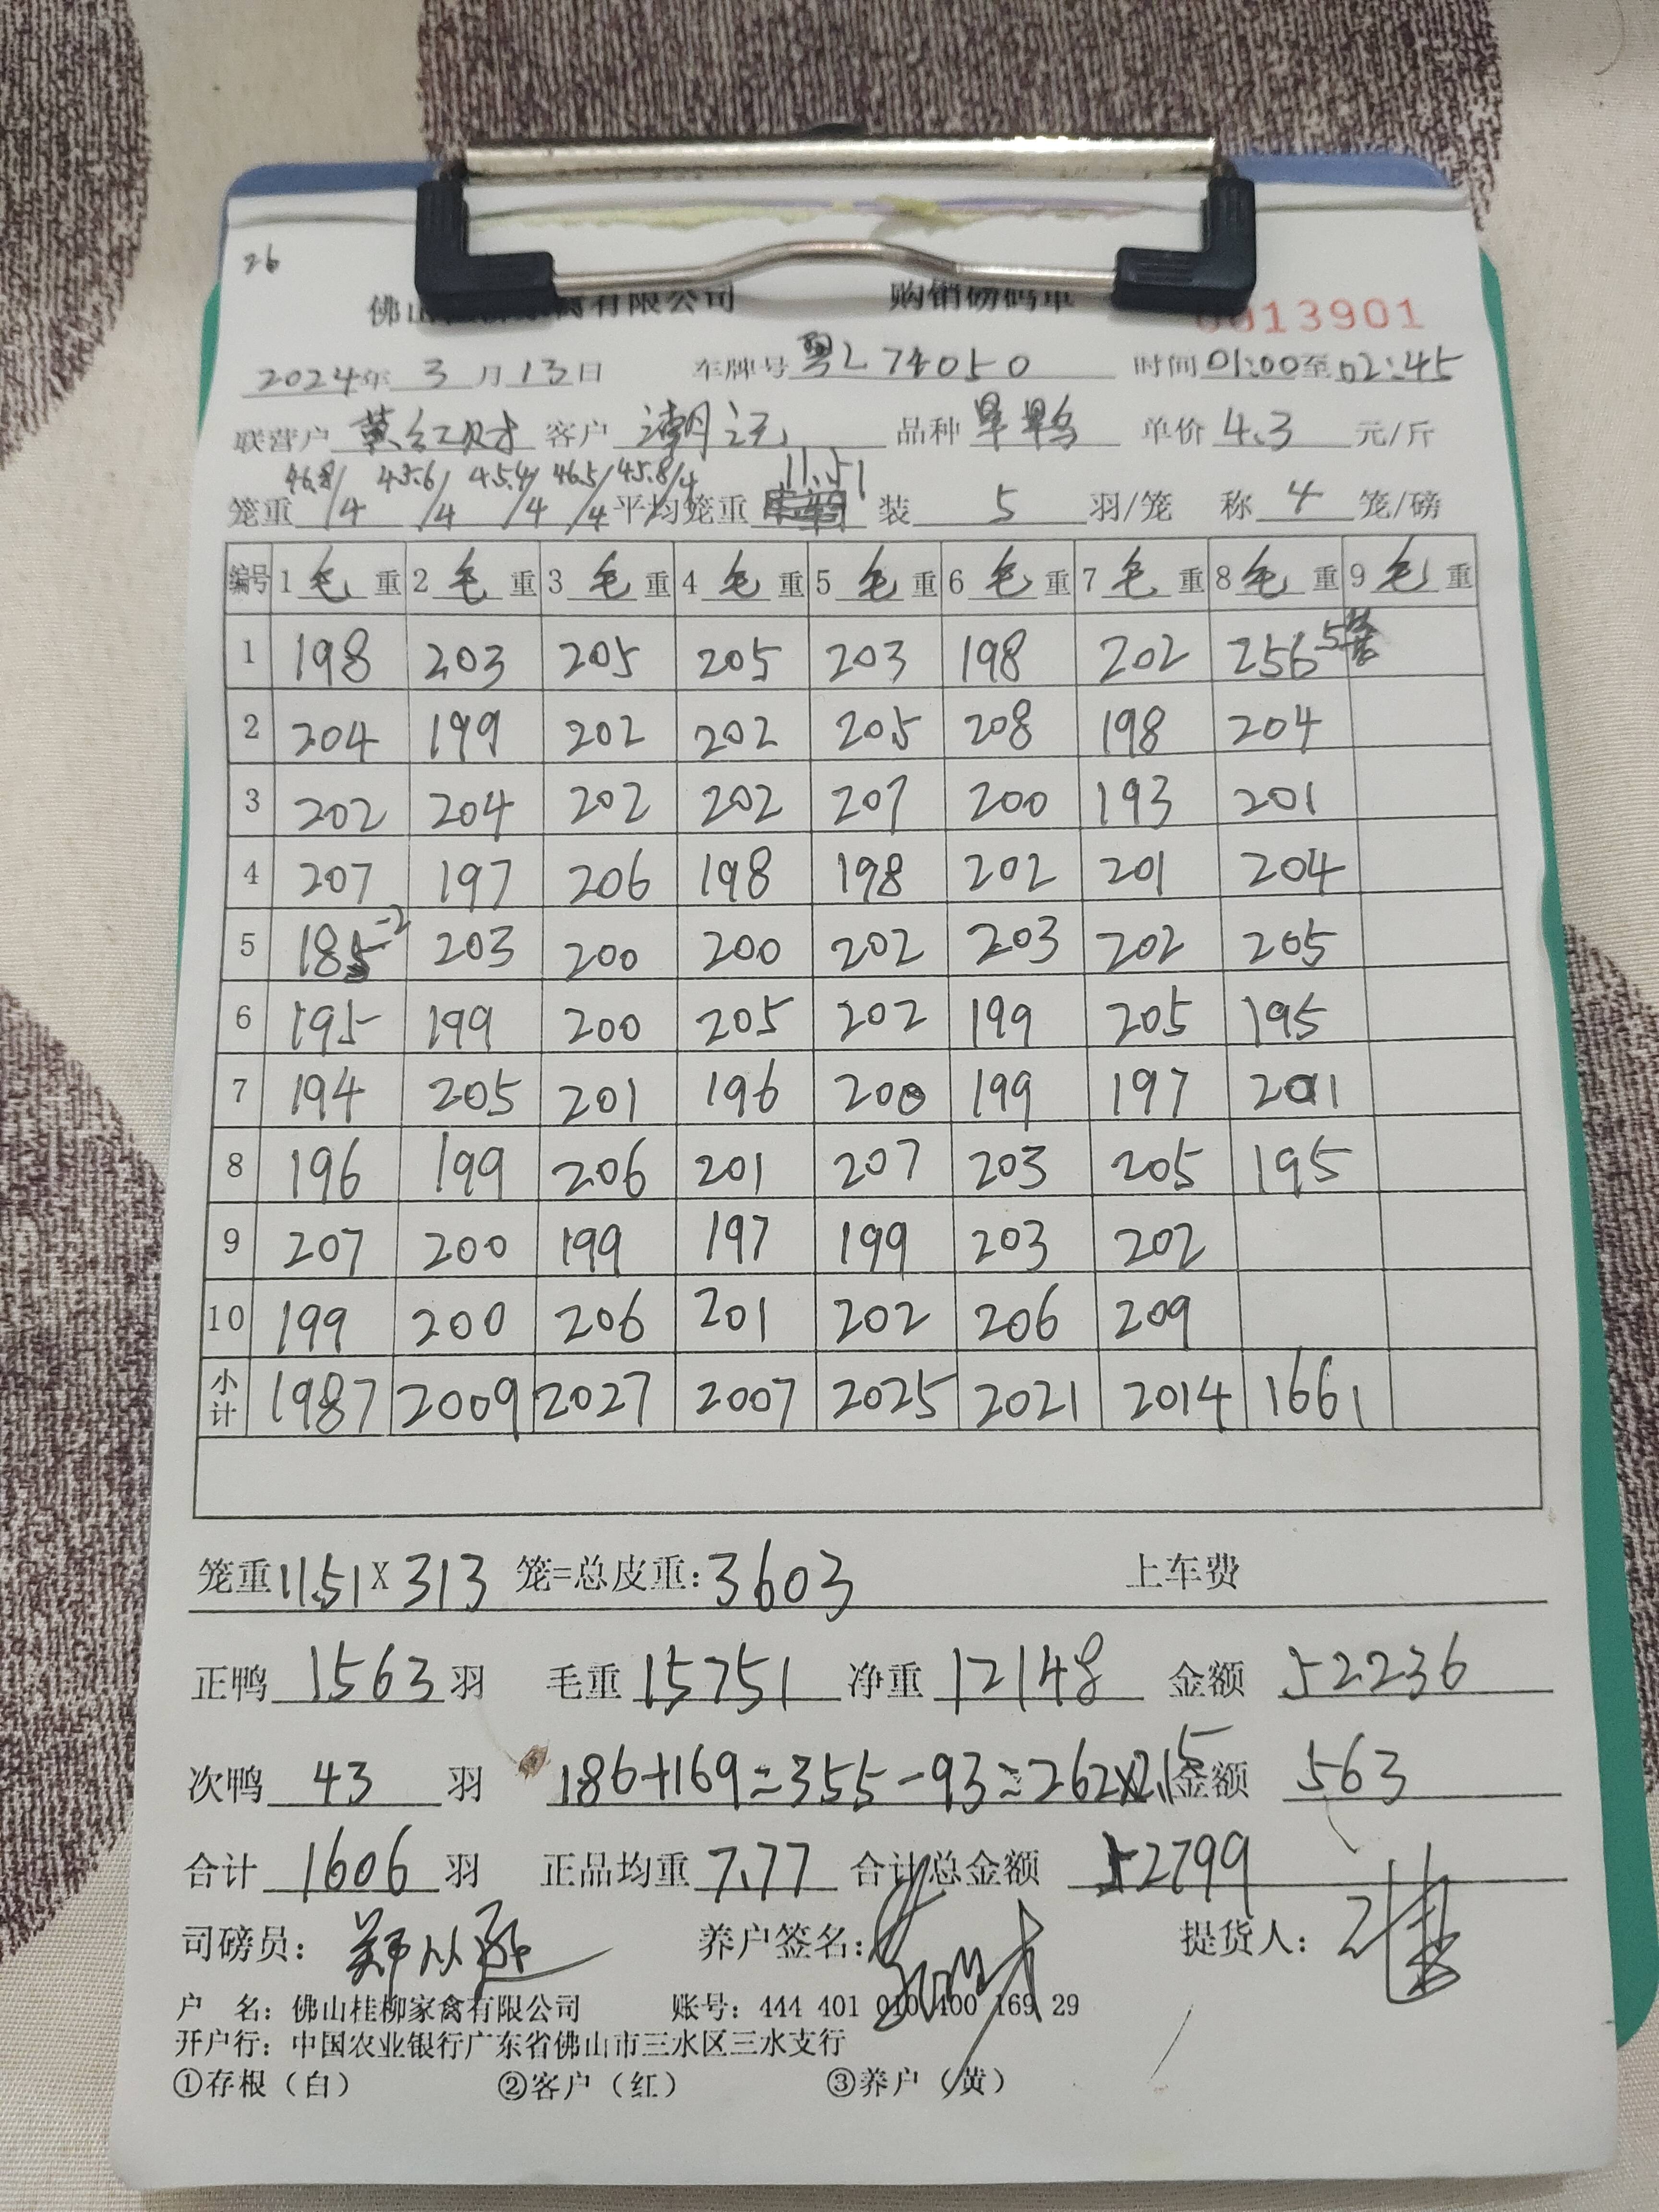 26
佛山 禽有限公司 购销磅码单 0013901
2024年 3 月 13 日 车牌号 粤L74050 时间 01:00 至 02:45
联营户 黄红财 客户 潮记 品种 旱鸭 单价 4.3 元/斤
笼重 46.8/4 45.6/4 45.4/4 46.5/4 45.8/4 平均笼重 11.51 装 5 羽/笼 称 4 笼/磅
编号 1 毛 重 2 毛 重 3 毛 重 4 毛 重 5 毛 重 6 毛 重 7 毛 重 8 毛 重 9 毛 重
1 198 203 205 205 203 198 202 256 5
2 204 199 202 202 205 208 198 204
3 202 204 202 202 207 200 193 201
4 207 197 206 198 198 202 201 204
5 185 -2 203 200 200 202 203 202 205
6 195 199 200 205 202 199 205 195
7 194 205 201 196 200 199 197 201
8 196 199 206 201 207 203 205 195
9 207 200 199 197 199 203 202
10 199 200 206 201 202 206 209
小计 1987 2009 2027 2007 2025 2021 2014 1661
笼重 11.51 X 313 笼=总皮重: 3603 上车费
正鸭 1563 羽 毛重 15751 净重 12148 金额 52236
次鸭 43 羽 186+169=355-93=262×2.15 金额 563
合计 1606 羽 正品均重 7.77 合计总金额 52799
司磅员: 养户签名: 提货人:
户 名: 佛山桂柳家禽有限公司 账号: 444 401 010 400 169 29
开户行: 中国农业银行广东省佛山市三水区三水支行
①存根（白） ②客户（红） ③养户（黄）